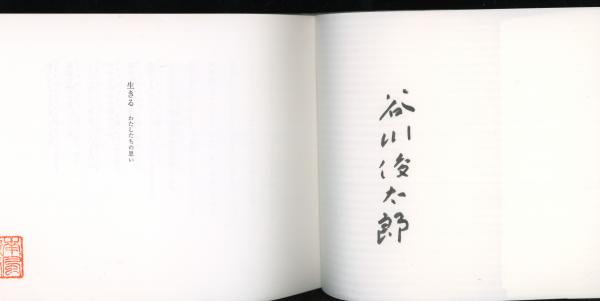 谷川俊太郎
生きる わたしたちの思い